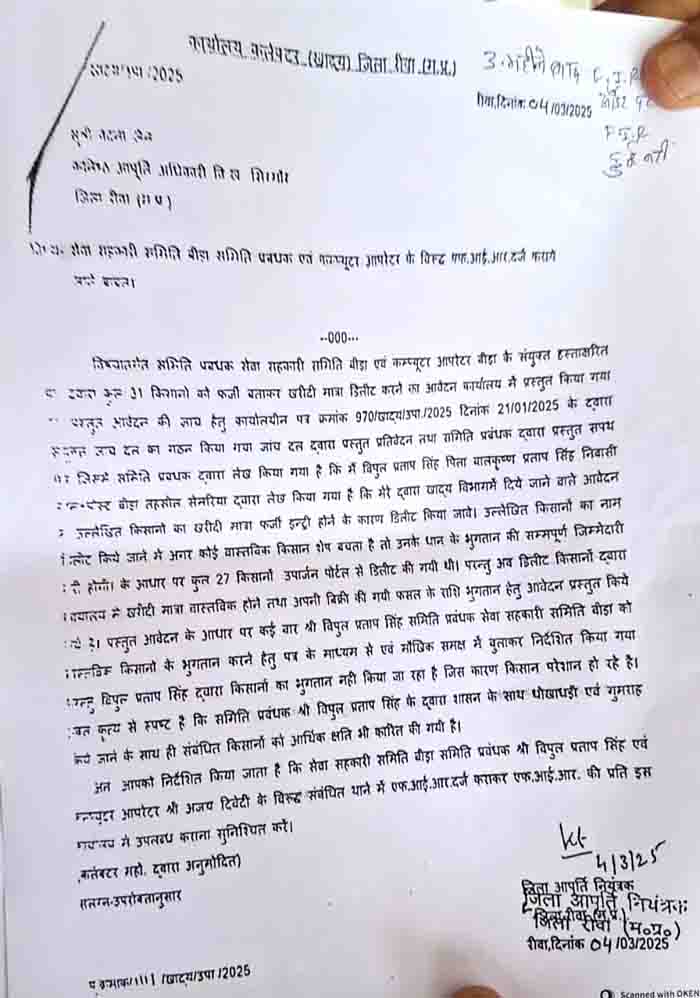 कार्यालय कलेक्टर (खाद्य) जिला रीवा (म.प्र.)
/खाद्य/उपा /2025
रीवा,दिनांक 04/03/2025
3 महीने बाद F.I.R
F.I.R
प्रति
कनिष्ठ आपूर्ति अधिकारी वि ख सिरमौर
जिला रीवा (म प्र)
विषय: सेवा सहकारी समिति बीड़ा समिति प्रबंधक एवं कम्प्यूटर आपरेटर के विरूद्ध एफ.आई.आर.दर्ज कराये
जाने बावत।
--000---
विषयांतर्गत समिति प्रबंधक सेवा सहकारी समिति बीड़ा एवं कम्प्यूटर आपरेटर बीड़ा के संयुक्त हस्ताक्षरित
द्वारा कुल 31 किसानों को फर्जी बताकर खरीदी मात्रा डिलीट करने का आवेदन कार्यालय में प्रस्तुत किया गया
प्रस्तुत आवेदन की जांच हेतु कार्यालयीन पत्र क्रमांक 970/खाद्य/उपा./2025 दिनांक 21/01/2025 के द्वारा
जांच दल का गठन किया गया जांच दल द्वारा प्रस्तुत प्रतिवेदन तथा समिति प्रबंधक द्वारा प्रस्तुत सपथ
जिसमें समिति प्रबंधक द्वारा लेख किया गया है कि मैं विपुल प्रताप सिंह पिता बालकृष्ण प्रताप सिंह निवासी
बीड़ा तहसील सेमरिया द्वारा लेख किया गया है कि मेरे द्वारा खाद्य विभागमें दिये जाने वाले आवेदन
उल्लेखित किसानों का खरीदी मात्रा फर्जी इन्ट्री होने के कारण डिलीट किया जावे। उल्लेखित किसानों का नाम
डिलीट किये जाने में अगर कोई वास्तविक किसान शेष बचता है तो उनके धान के भुगतान की सम्मपूर्ण जिम्मेदारी
होगी। के आधार पर कुल 27 किसानों उपार्जन पोर्टल से डिलीट की गयी थी। परन्तु अब डिलीट किसानों द्वारा
में खरीदी मात्रा वास्तविक होने तथा अपनी बिक्री की गयी फसल के राशि भुगतान हेतु आवेदन प्रस्तुत किये
है। प्रस्तुत आवेदन के आधार पर कई बार श्री विपुल प्रताप सिंह समिति प्रबंधक सेवा सहकारी समिति बीड़ा को
किसानों के भुगतान करने हेतु पत्र के माध्यम से एवं मौखिक समक्ष में बुलाकर निर्देशित किया गया
विपुल प्रताप सिंह द्वारा किसानों का भुगतान नही किया जा रहा है जिस कारण किसान परेशान हो रहे है।
कृत्य से स्पष्ट है कि समिति प्रबंधक श्री विपुल प्रताप सिंह के द्वारा शासन के साथ धोखाधड़ी एवं गुमराह
किये जाने के साथ ही संबंधित किसानों को आर्थिक क्षति भी कारित की गयी है।
अतः आपको निर्देशित किया जाता है कि सेवा सहकारी समिति बीड़ा समिति प्रबंधक श्री विपुल प्रताप सिंह एवं
कम्प्यूटर आपरेटर श्री अजय द्विवेदी के विरूद्ध संबंधित थाने में एफ.आई.आर.दर्ज कराकर एफ.आई.आर. की प्रति इस
कार्यालय में उपलब्ध कराना सुनिश्चित करें।
(कलेक्टर महो. द्वारा अनुमोदित)
संलग्न-उपरोक्तानुसार
4/3/25
जिला आपूर्ति नियंत्रक
जिला आपूर्ति नियंत्रक
जिला रीवा (म.प्र.)
जिला रीवा (म०प्र०)
रीवा,दिनांक 04/03/2025
/खाद्य/उपा /2025
Scanned with OKEN